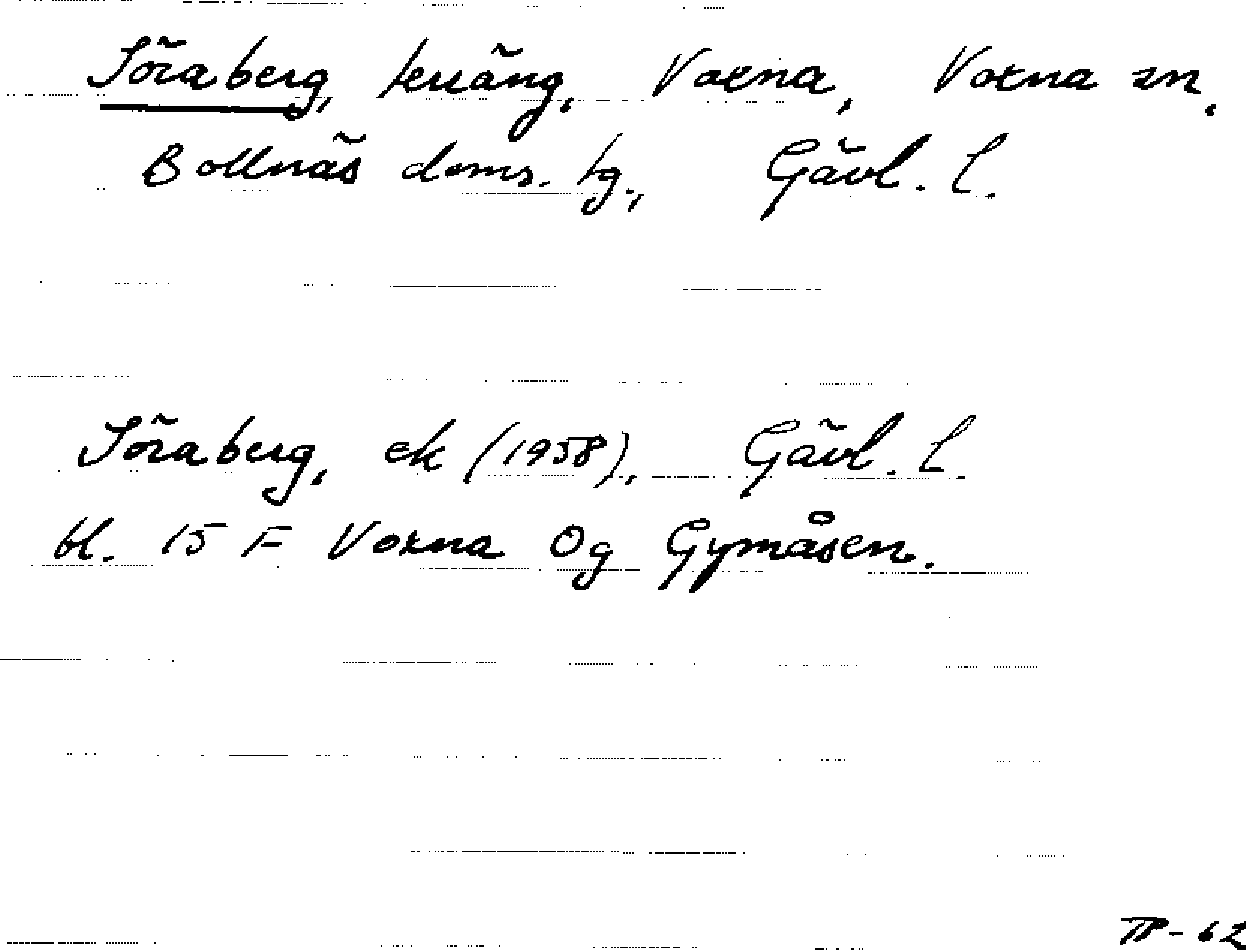 Söraberg, terräng, Voxna, Voxna sn.
Bollnäs doms. tg., Gävl. l.
Söraberg, ek (1958), Gävl. l.
bl. 15 F Voxna Og Gymåsen.
TP-62